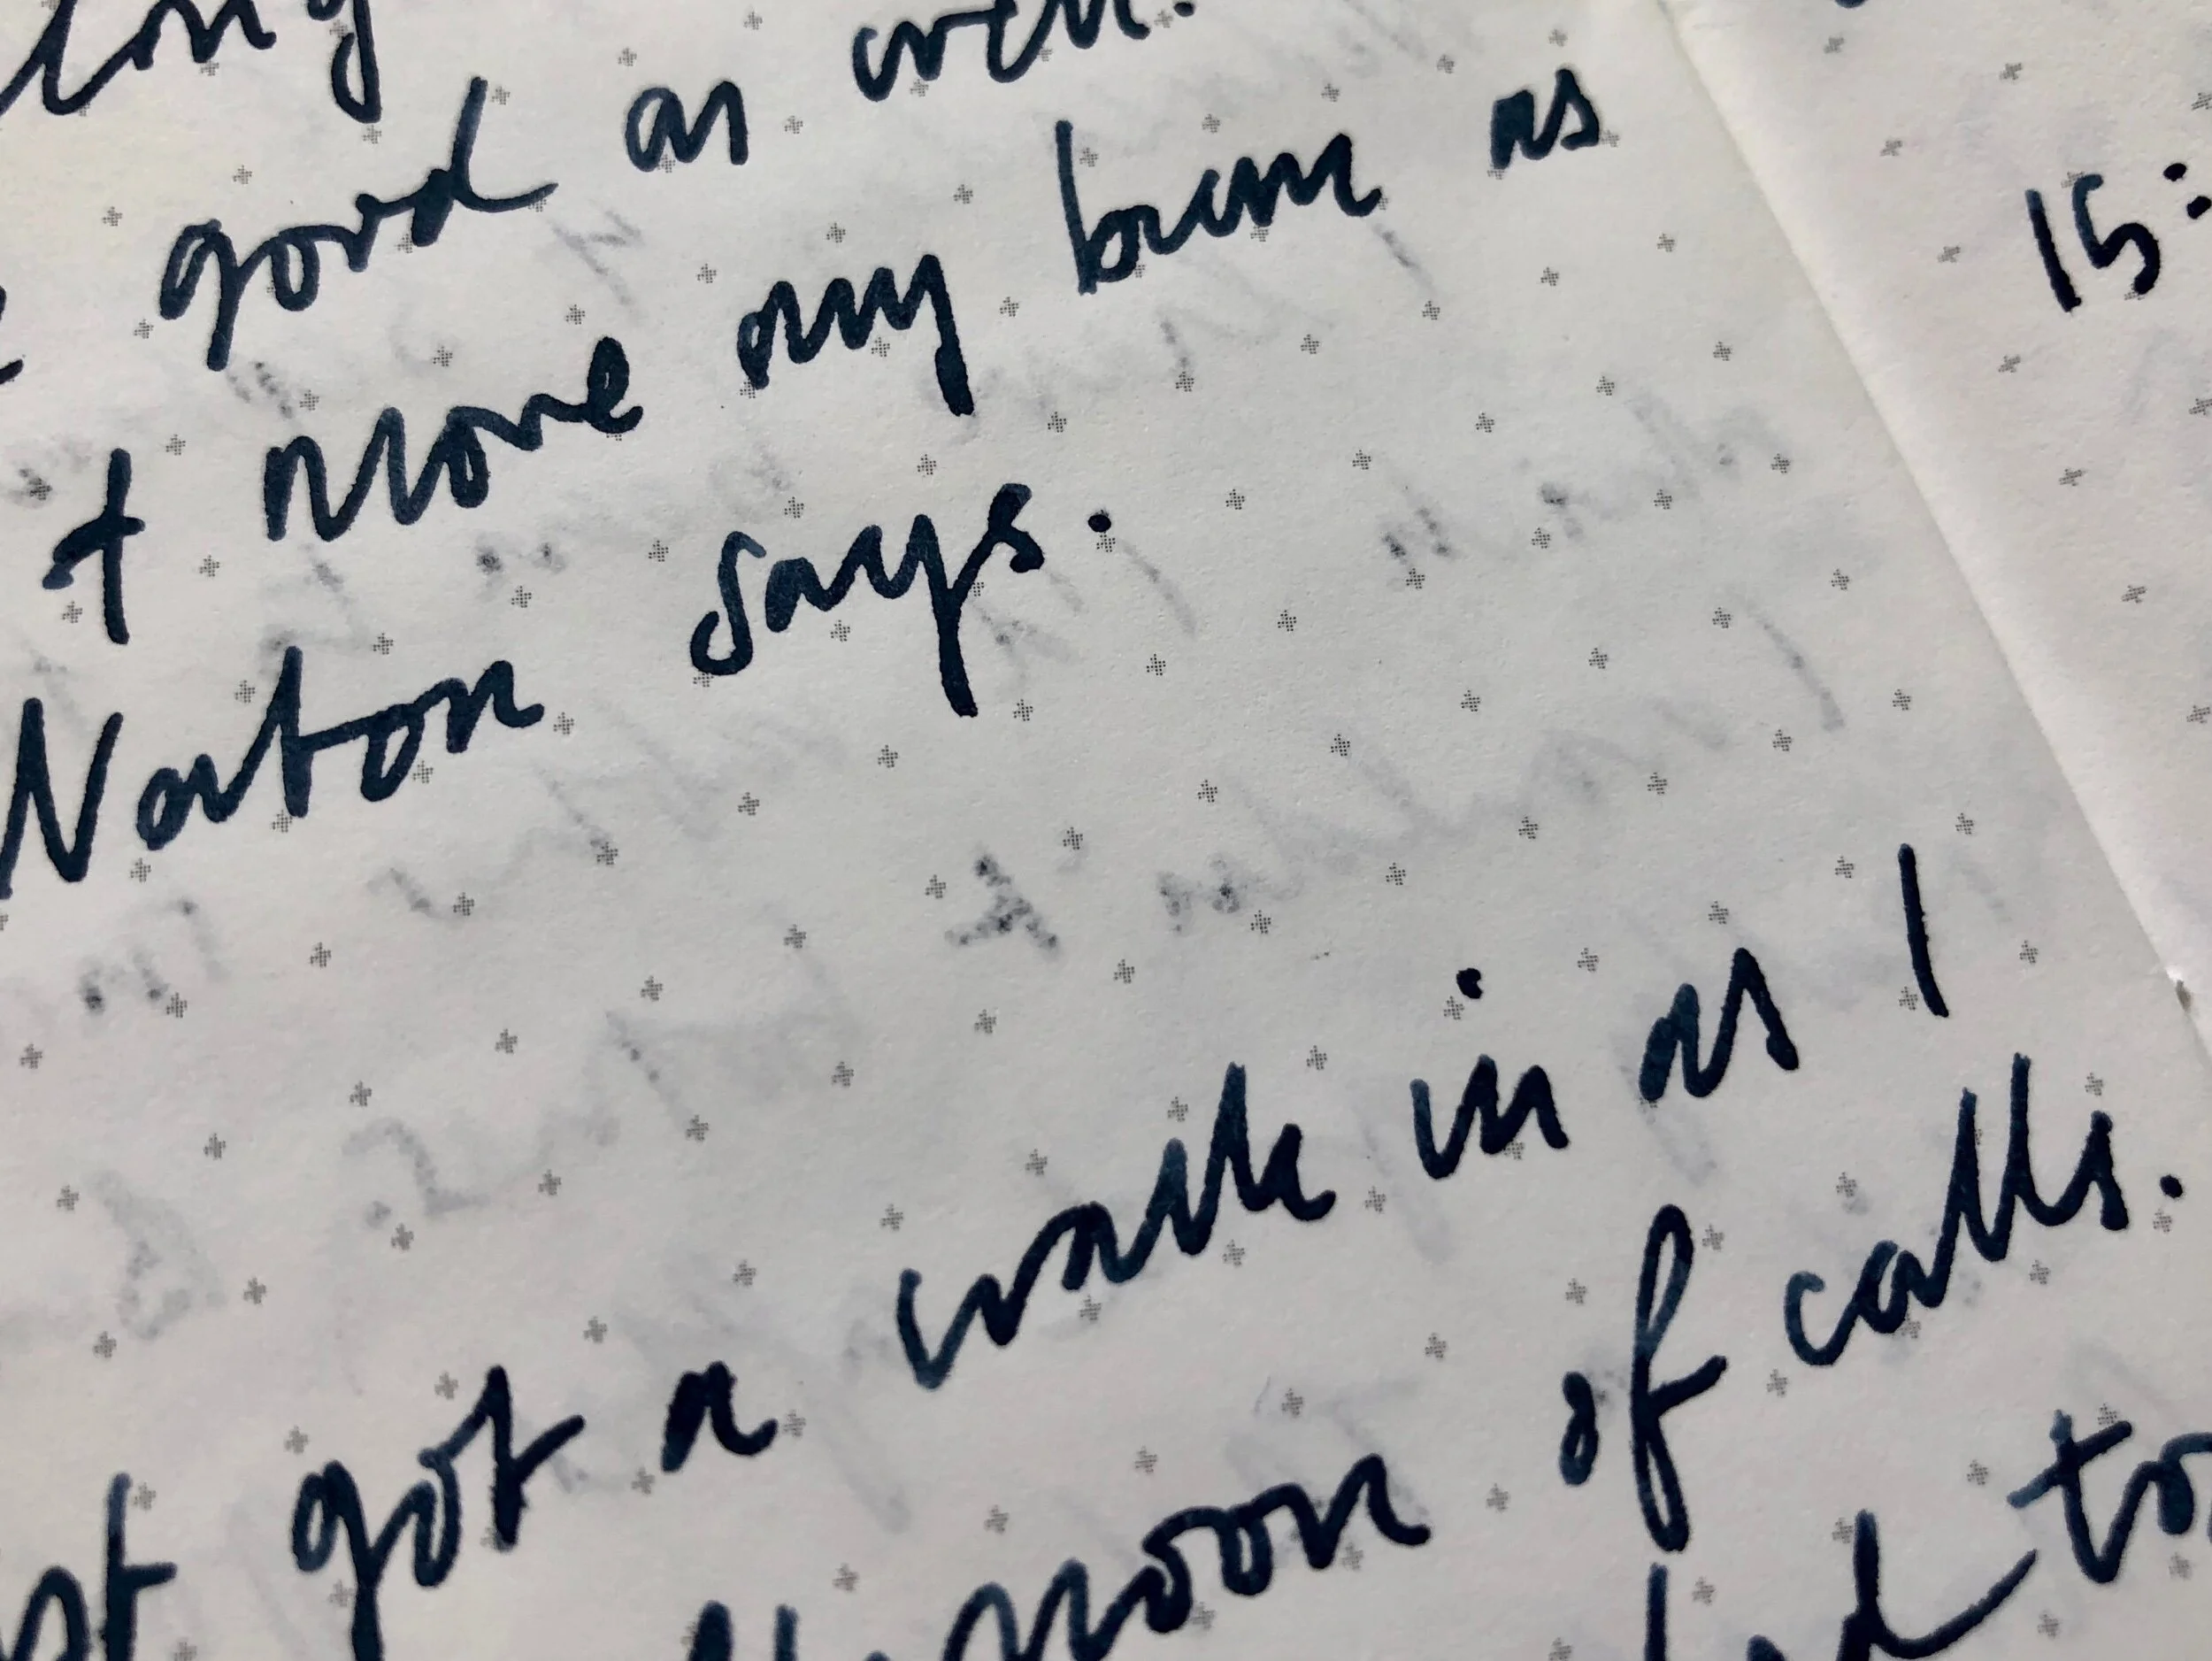 good as well.
+ move my bum as
Norton says.
got a walk in as I
noon of calls.
to
15: